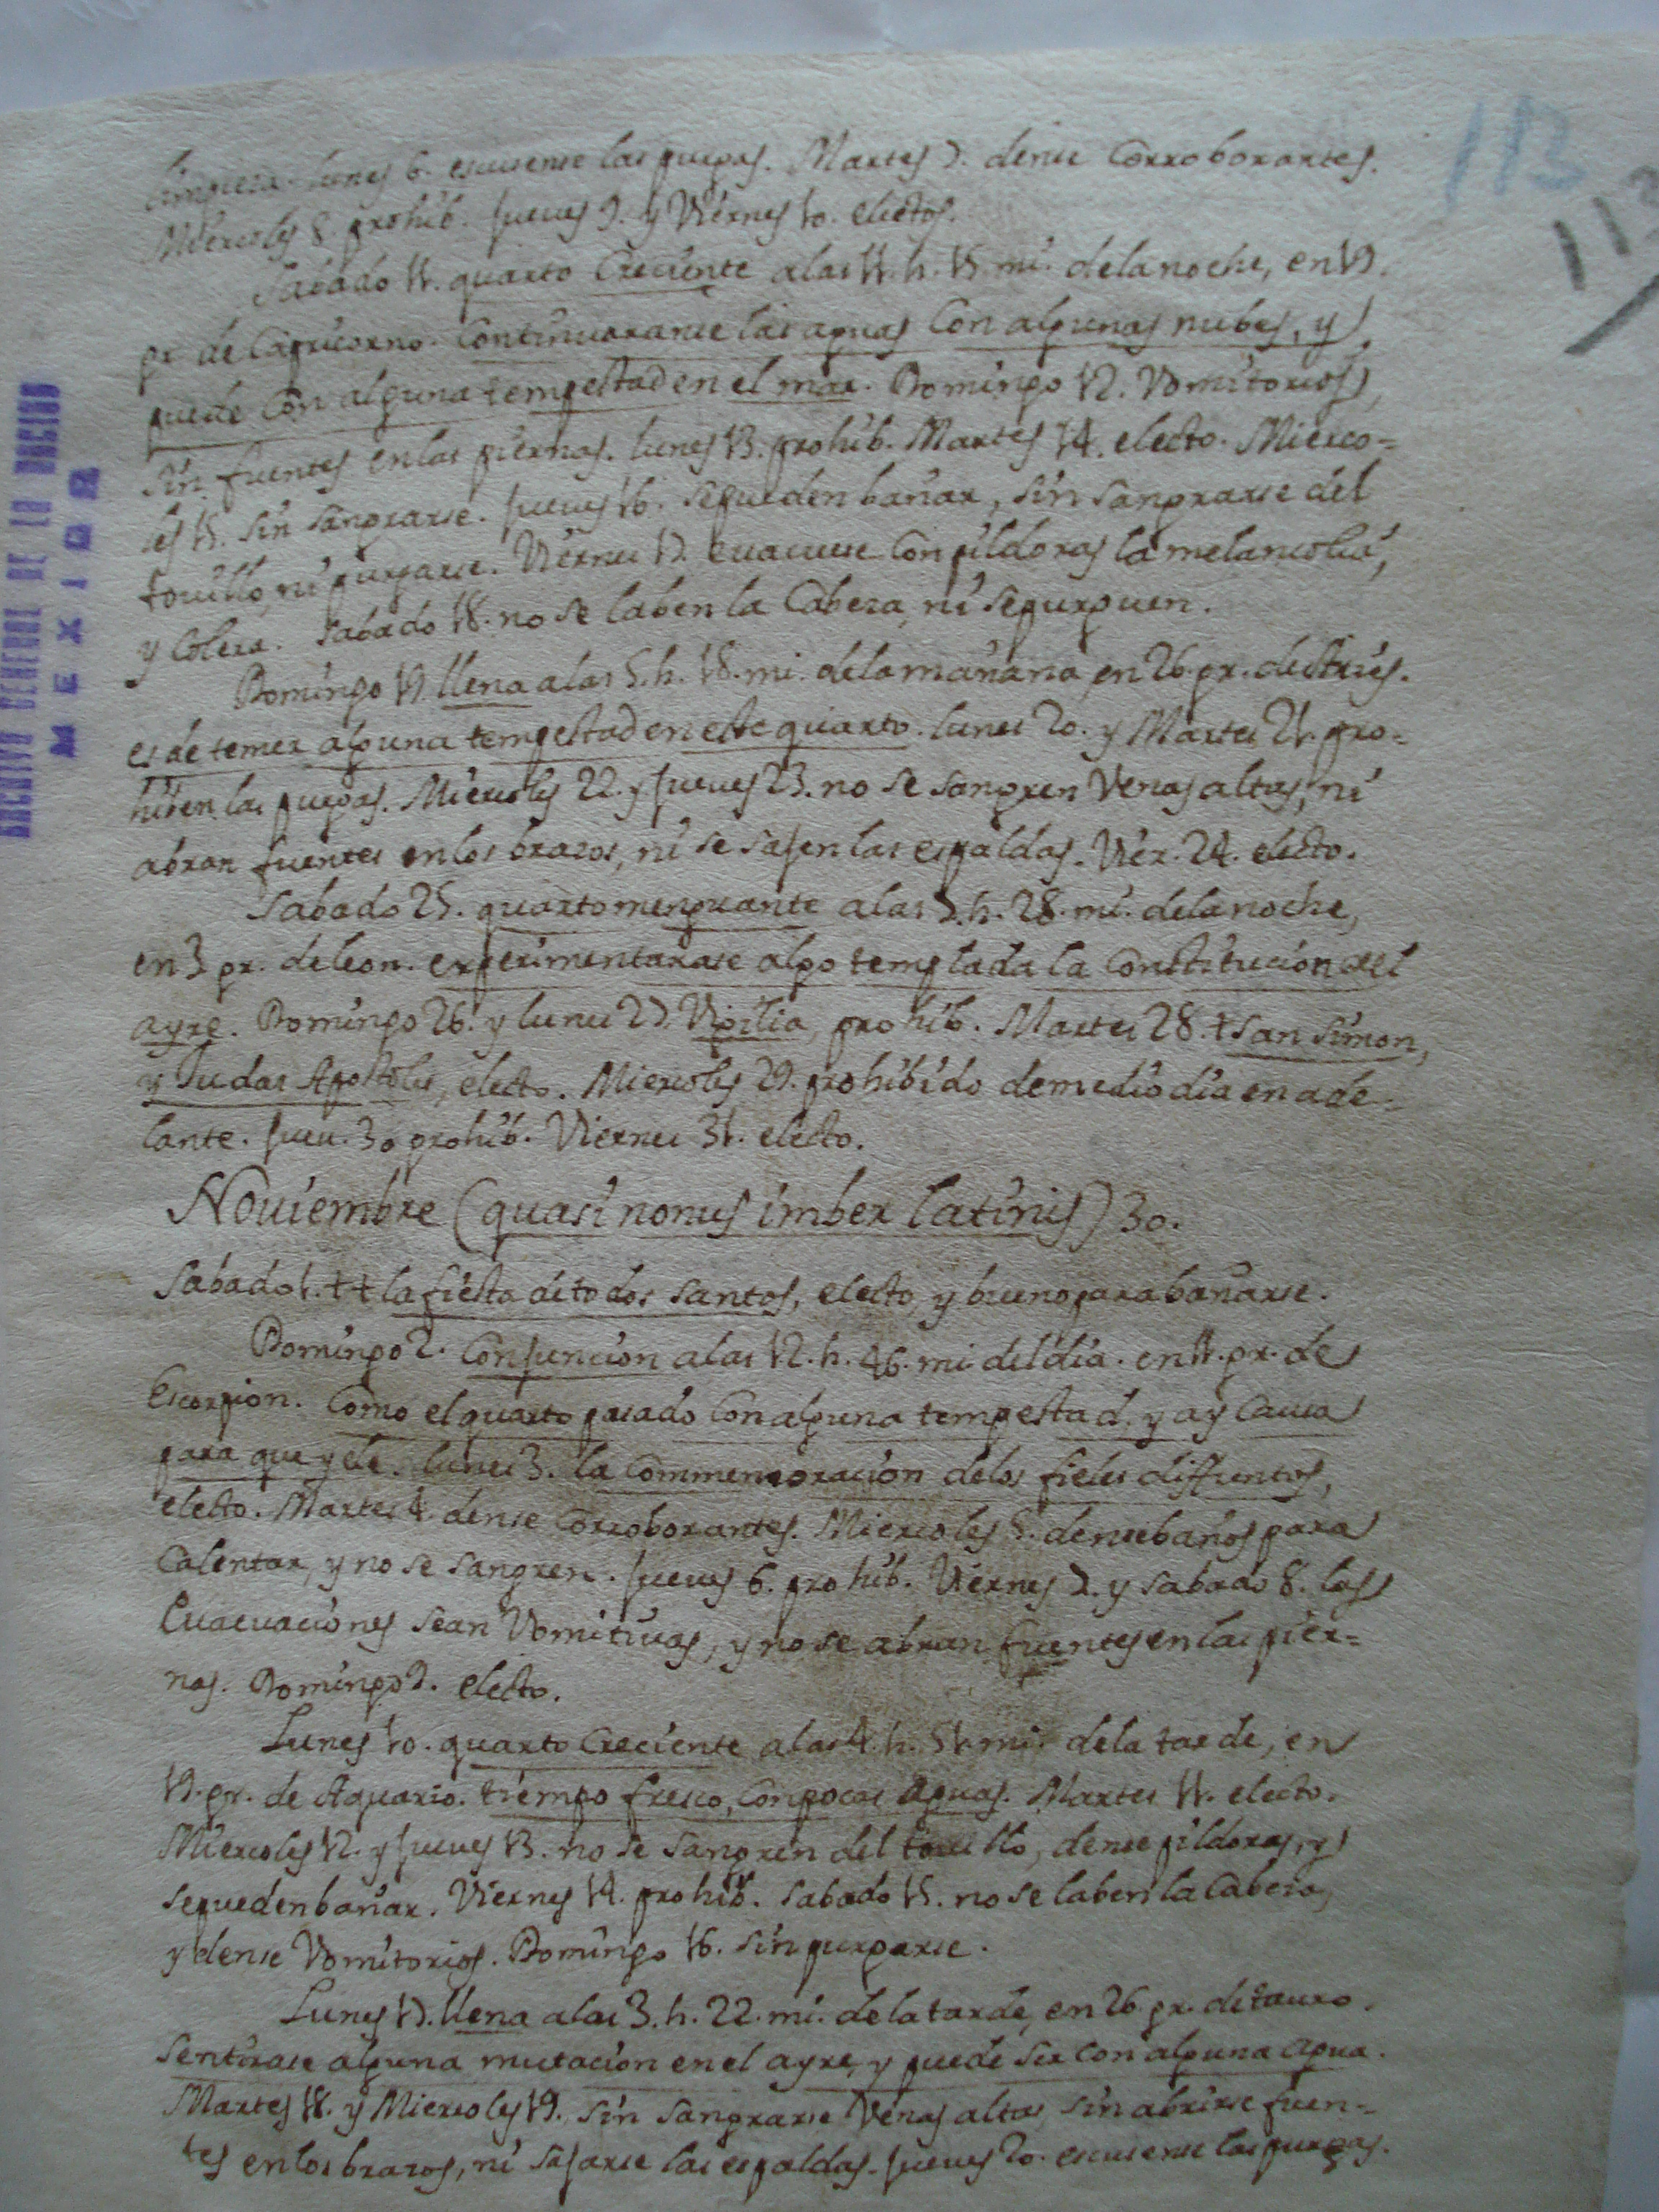 113
113
ARCHIVO GENERAL DE LA NACION
MEXICO
limpieza. lunes 6. escusense las purgas. Martes 7. dense Corroborantes.
Miercoles 8. prohib. jueues 9. y Viernes 10. electos.
Sabado 11. quarto Creciente a las 11. h. 15. mi. de la noche, en 19.
gr. de Capricorno. Continuaranse las aguas Con algunas nubes, y
puede Con alguna tempestad en el mar. Domingo 12. Vomitorios,
sin fuentes en las piernas. lunes 13. prohib. Martes 14. electo. Mierco=
les 15. sin sangrarse. jueues 16. se pueden bañar, sin sangrarse del
touillo, ni purgarse. Viernes 17. euacuese Con pildoras la melancolia,
y Colera. Sabado 18. no se laben la Cabeza, ni se purguen.
Domingo 19. llena a las 5. h. 18. mi. de la mañana, en 26. gr. de Aries.
es de temer alguna tempestad en este quarto. lunes 20. y Martes 21. pro=
hiben las purgas. Miercoles 22. y jueues 23. no se sangren Venas altas, ni
abran fuentes en los brazos, ni se sajen las espaldas. Vier. 24. electo.
Sabado 25. quarto menguante a las 7. h. 28. mi. de la noche,
en 3 gr. de leon. experimentarase algo templada la Constitucion del
ayre. Domingo 26. y lunes 27. Vigilia, prohib. Martes 28. + San Simon,
y Judas Apostoles, electo. Miercoles 29. prohibido de medio dia en ade=
lante. jueu. 30 prohib. Viernes 31. electo.
Nouiembre (quasi nonus imber latinis) 30.
Sabado 1. ++ la fiesta de todos Santos, electo, y bueno para bañarse.
Domingo 2. Conjuncion a las 12. h. 46. mi. del dia. en 11. gr. de
Escorpion. Como el quarto pasado Con alguna tempestad. y ay Causa
para que yele. lunes 3. la Commemoracion de los fieles diffuntos,
electo. Martes 4. dense Corroborantes. Miercoles 5. dense baños para
Calentar, y no se sangren. jueues 6. prohib. Viernes 7. y sabado 8. las
Euacuaciones sean Vomitiuas, y no se abran fuentes en las pier=
nas. Domingo 9. electo.
Lunes 10. quarto Creciente a las 4. h. 51. mi. de la tarde, en
19. gr. de Aquario. tiempo fresco, Con pocas aguas. Martes 11. electo.
Miercoles 12. y jueues 13. no se sangren del touillo, dense pildoras, y
se pueden bañar. Viernes 14. prohib. Sabado 15. no se laben la Cabeza,
y dense Vomitorios. Domingo 16. sin purgarse.
Lunes 17. llena a las 3. h. 22. mi. de la tarde, en 26. gr. de tauro.
Sentirase alguna mutacion en el ayre, y puede ser con alguna agua.
Martes 18. y Miercoles 19. sin sangrarse Venas altas, sin abrirse fuen=
tes en los brazos, ni sajarse las espaldas. jueues 20. escusense las purgas.